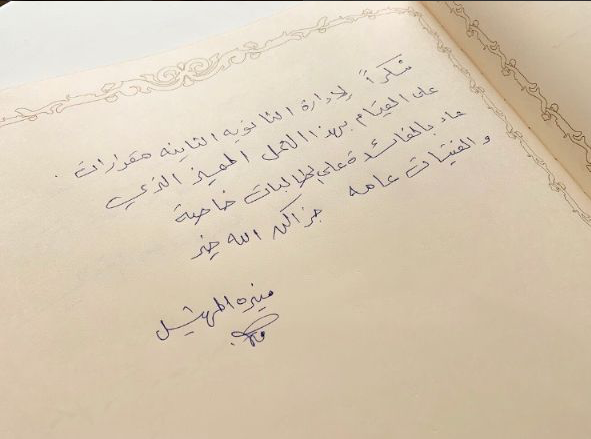 شكراً لإدارة الثانويه الثانيه مقررات .
على القيام بهذا العمل المميز الذي
عاد بالفائدة على الطالبات خاصة
والفتيات عامه جزاكن الله خير
منيره المهشيل